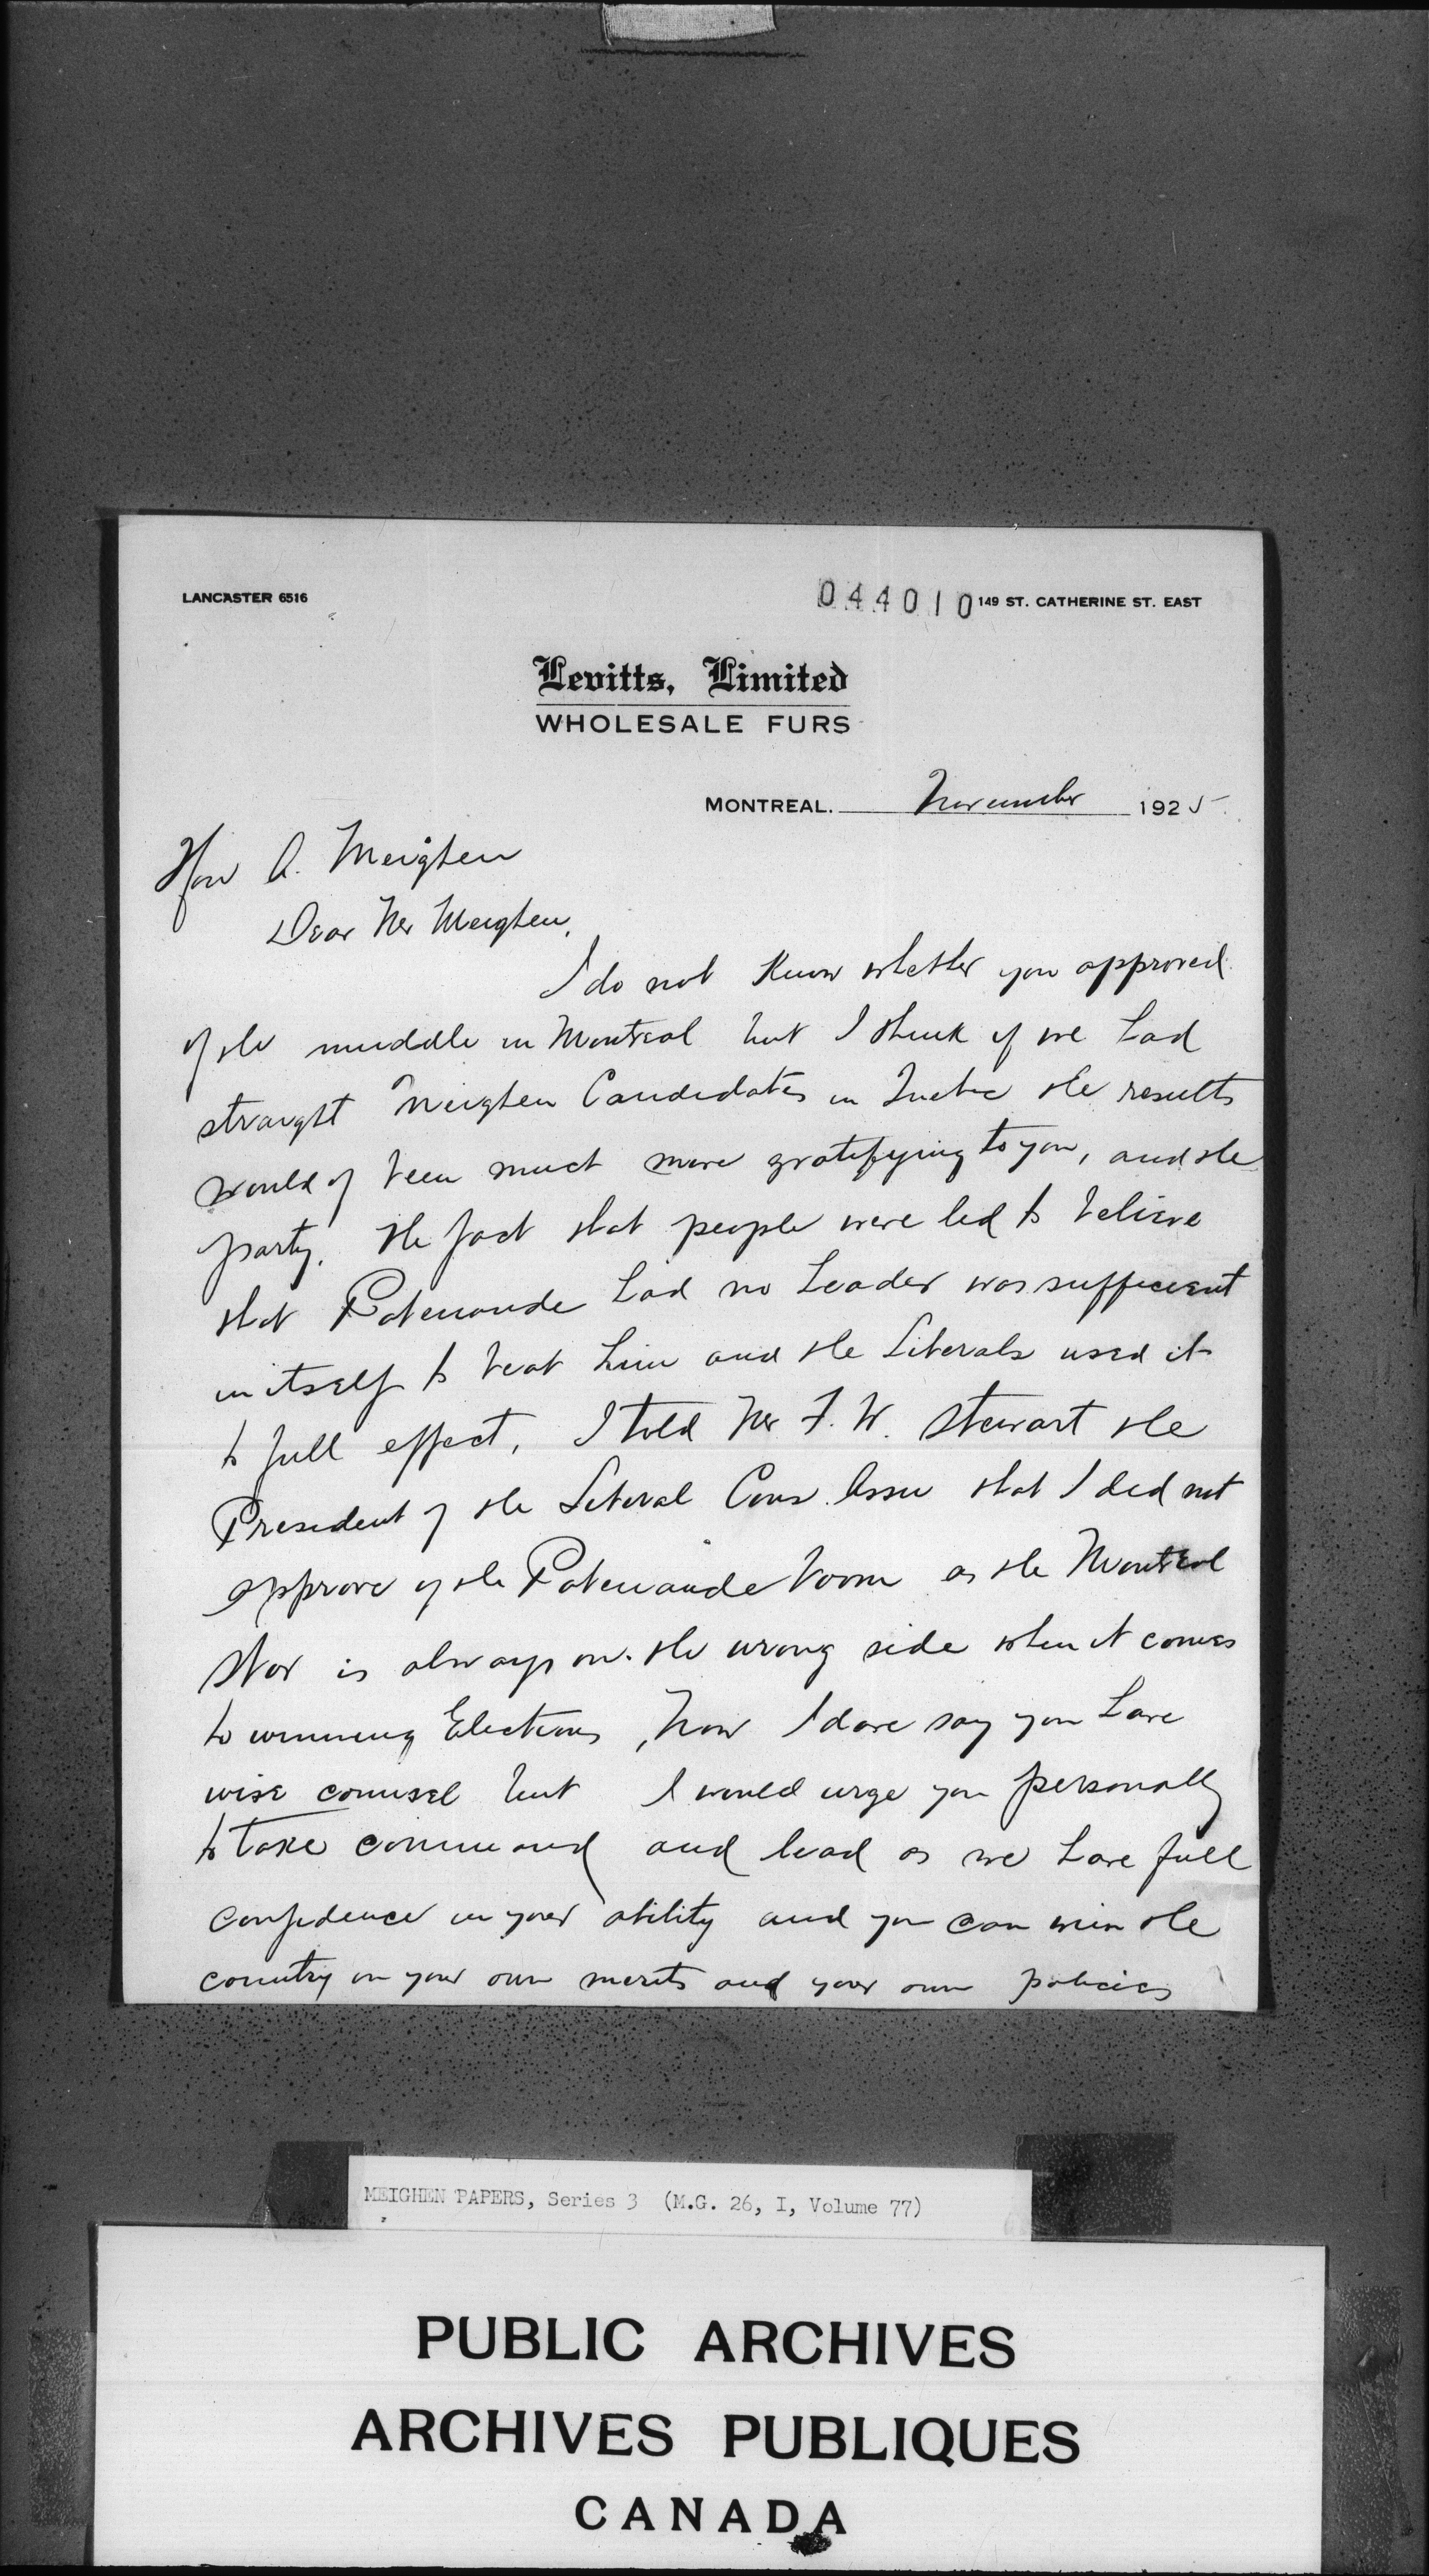 LANCASTER 6516
044010 149 ST. CATHERINE ST. EAST
Levitts, Limited
WHOLESALE FURS
MONTREAL. November 1925
Hon A. Meighen
Dear Mr Meighen,
I do not know whether you approved
of the muddle in Montreal but I think if we had
straight Meighen Candidates in Quebec the results
would of been much more gratifying to you, and the
party. The fact that people were led to believe
that Patenaude had no Leader was sufficient
in itself to beat him and the Liberals used it
to full effect, I told Mr F. W. Stewart the
President of the Liberal Cons. Assn that I did not
approve of the Patenaude boom as the Montreal
Star is always on the wrong side when it comes
to winning Elections, Now I dare say you have
wise counsel but I would urge you personally
to take command and lead as we have full
confidence in your ability and you can win the
country on your own merits and your own policies
MEIGHEN PAPERS, Series 3 (M.G. 26, I, Volume 77)
PUBLIC ARCHIVES
ARCHIVES PUBLIQUES
CANADA